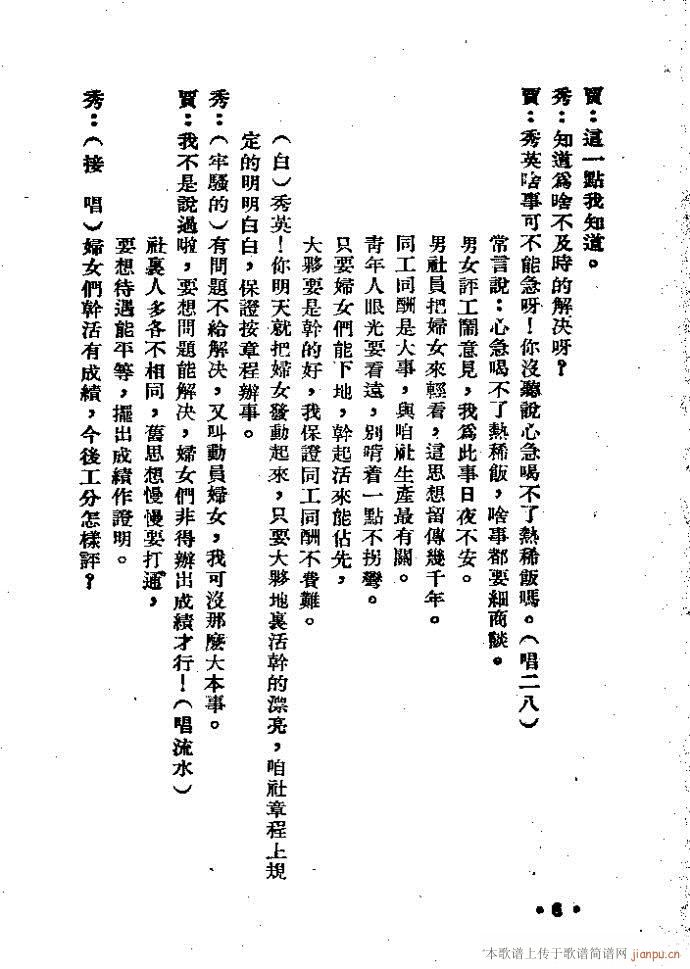 賈：這一點我知道。
秀：知道爲啥不及時的解决呀？
賈：秀英啥事可不能急呀！你沒聽說心急喝不了熱稀飯嗎。（唱二八）
常言說：心急喝不了熱稀飯，啥事都要細商談。
男女評工鬧意見，我爲此事日夜不安。
男社員把婦女來輕看，這思想留傳幾千年。
同工同酬是大事，與咱社生產最有關。
青年人眼光要看遠，別啃着一點不拐彎。
只要婦女們能下地，幹起活來能佔先，
大夥要是幹的好，我保證同工同酬不費難。
（白）秀英！你明天就把婦女發動起來，只要大夥地裏活幹的漂亮，咱社章程上規
定的明明白白，保證按章程辦事。
秀：（牢騷的）有問題不給解决，又叫動員婦女，我可沒那麽大本事。
賈：我不是說過啦，要想問題能解决，婦女們非得辦出成績才行！（唱流水）
社裏人多各不相同，舊思想慢慢要打通，
要想待遇能平等，擺出成績作證明。
秀：（接　唱）婦女們幹活有成績，今後工分怎樣評？
•6•
本歌谱上传于歌谱简谱网
jianpu.cn